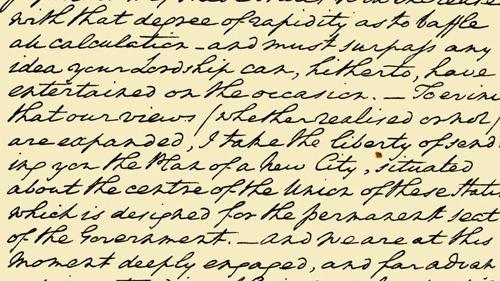 with that degree of rapidity as to baffle
all calculation - and must surpass any
idea your Lordship can, hitherto, have
entertained on the occasion. — To evin
that our views (whether realised or not)
are expanded, I take the liberty of send
ing you the Plan of a New City, situated
about the centre of the Union of these States
which is designed for the permanent seat
of the Government. — and we are at this
moment deeply engaged, and far advan